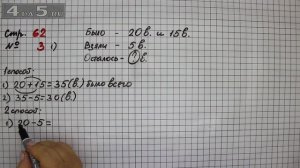 4DA5.RU
Стр. 62
№ 3 1)
Было - 20 в. и 15 в.
Взяли - 5 в.
Осталось - ? в.
1 способ:
1) 20+15=35(в.) было всего
2) 35-5=30(в.)
2 способ:
1) 20-5=